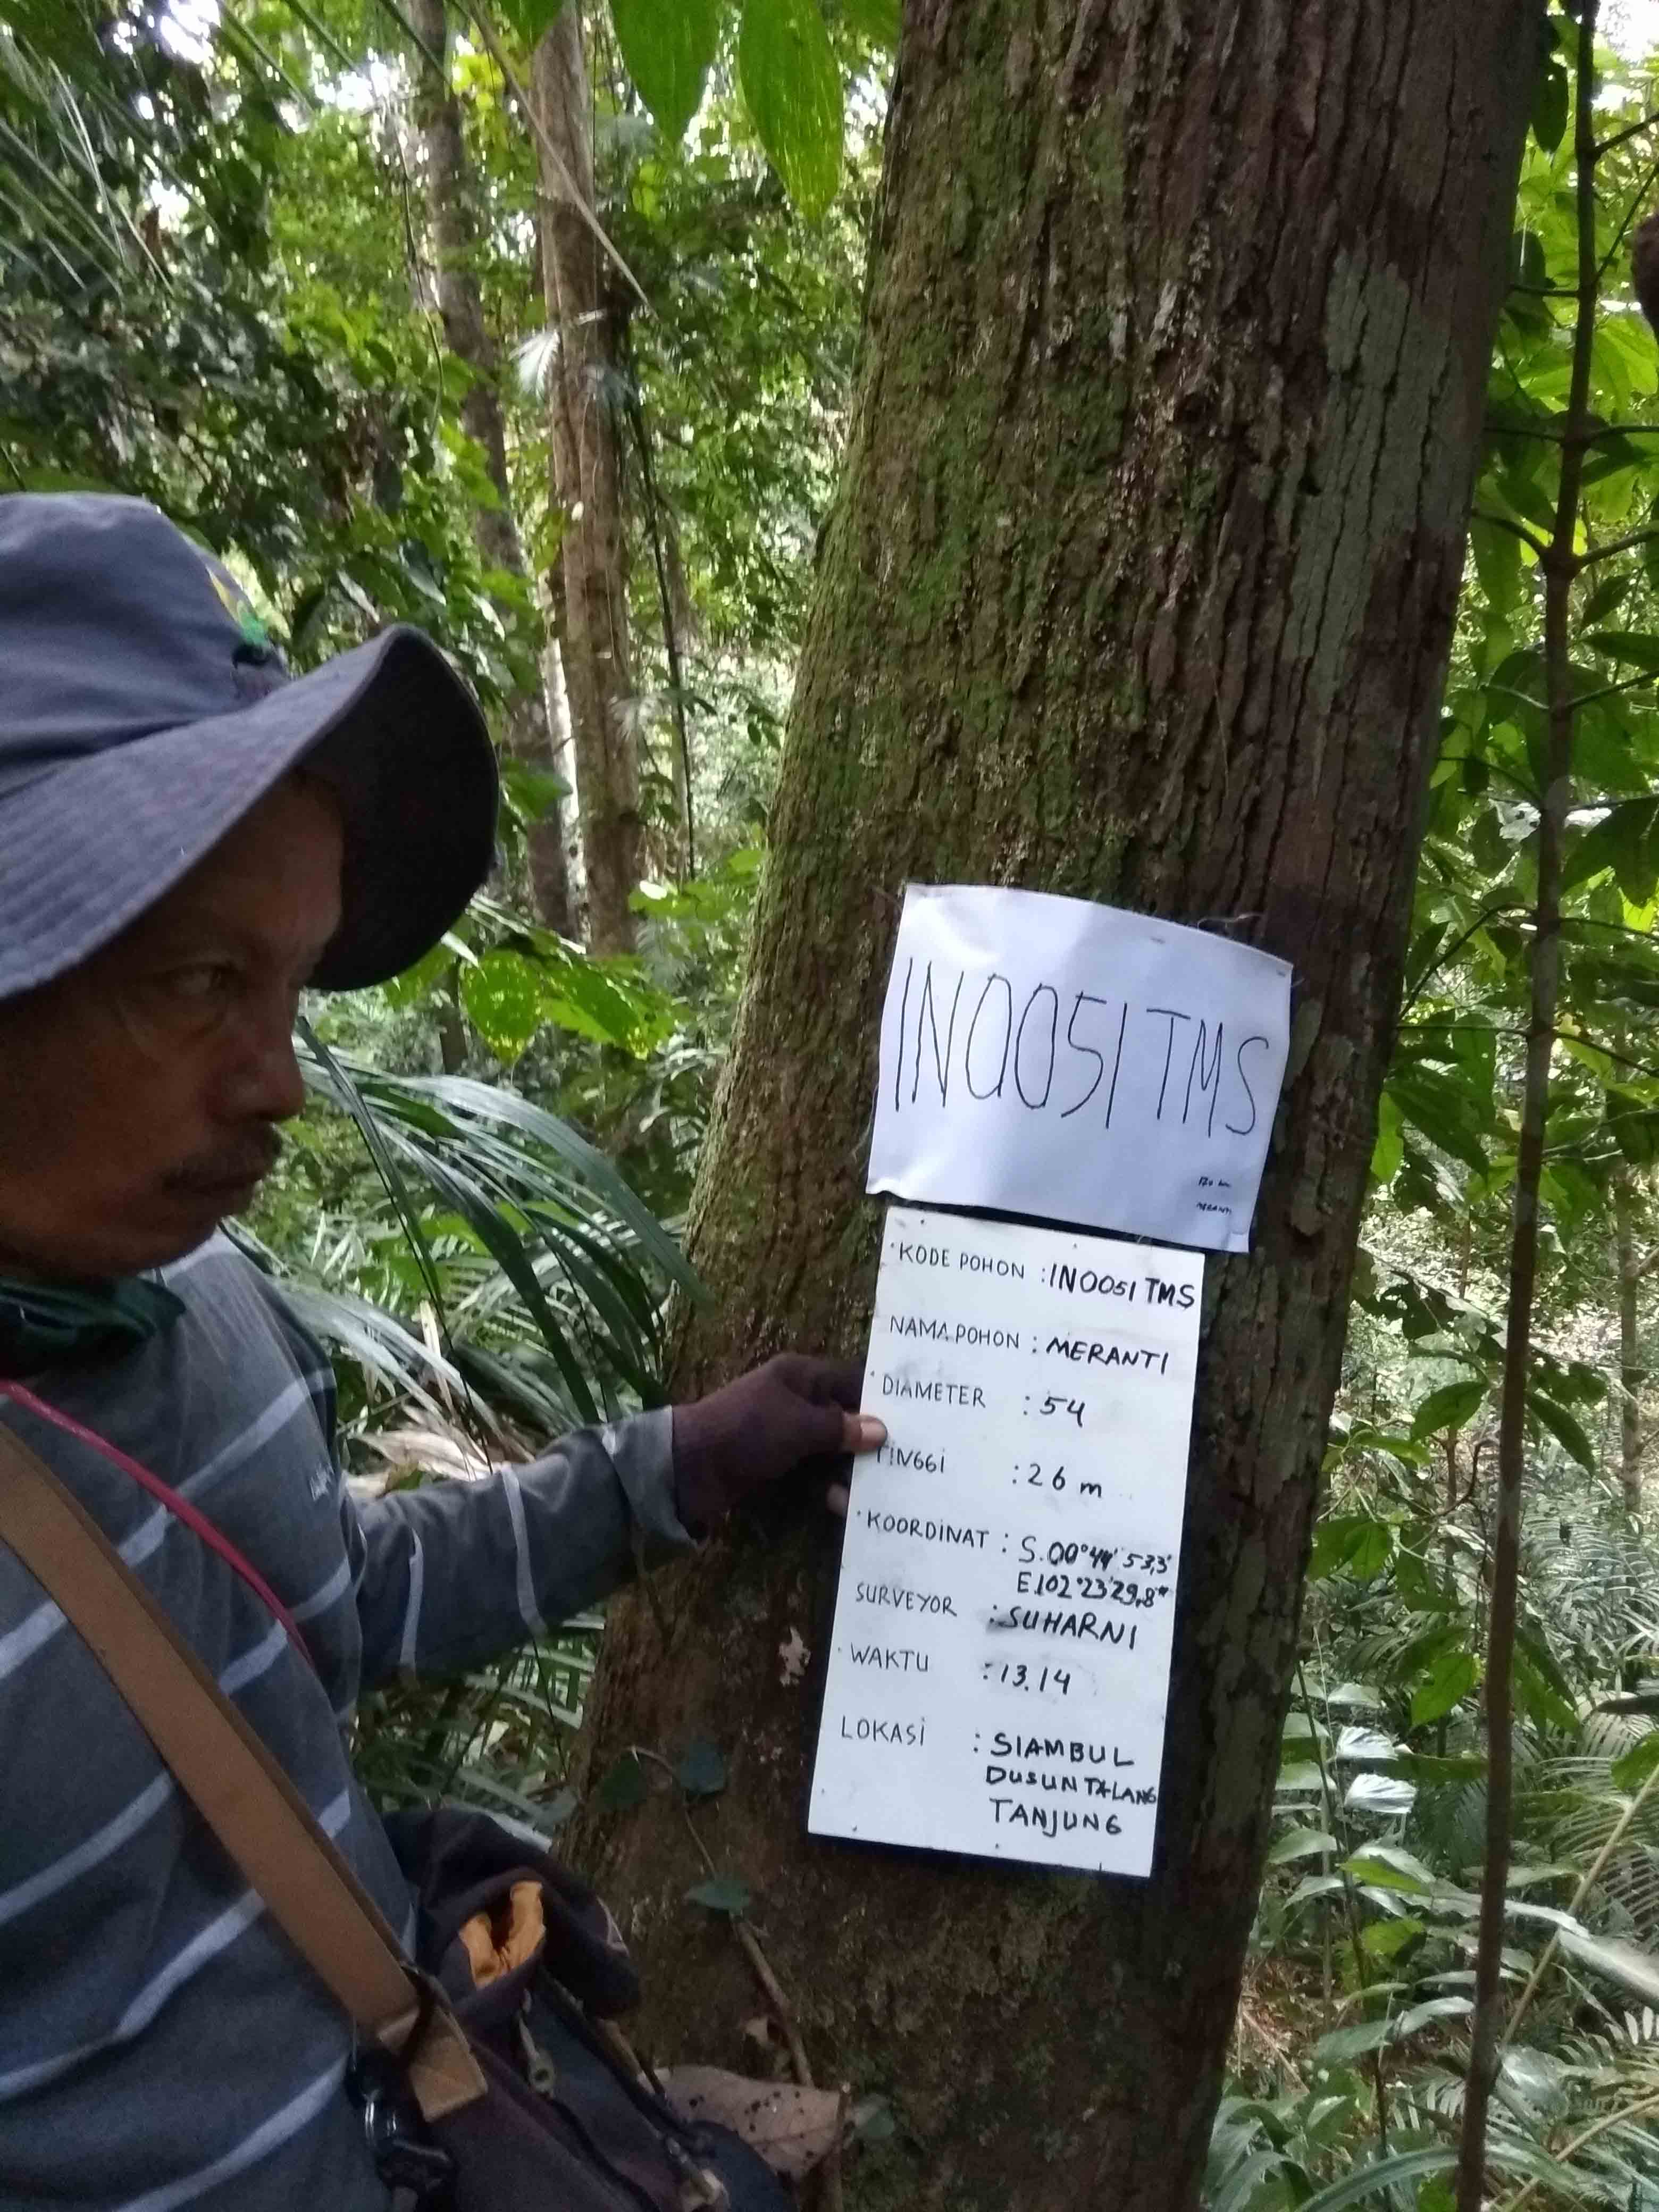 INOO51 TMS
170 cm
MERANTI
KODE POHON : INOO51 TMS
NAMA POHON : MERANTI
DIAMETER : 54
TINGGI : 26 m
KOORDINAT : S.00°44'53,3"
E.102°23'29,8"
SURVEYOR : SUHARNI
WAKTU : 13.14
LOKASI : SIAMBUL
DUSUN TALANG
TANJUNG